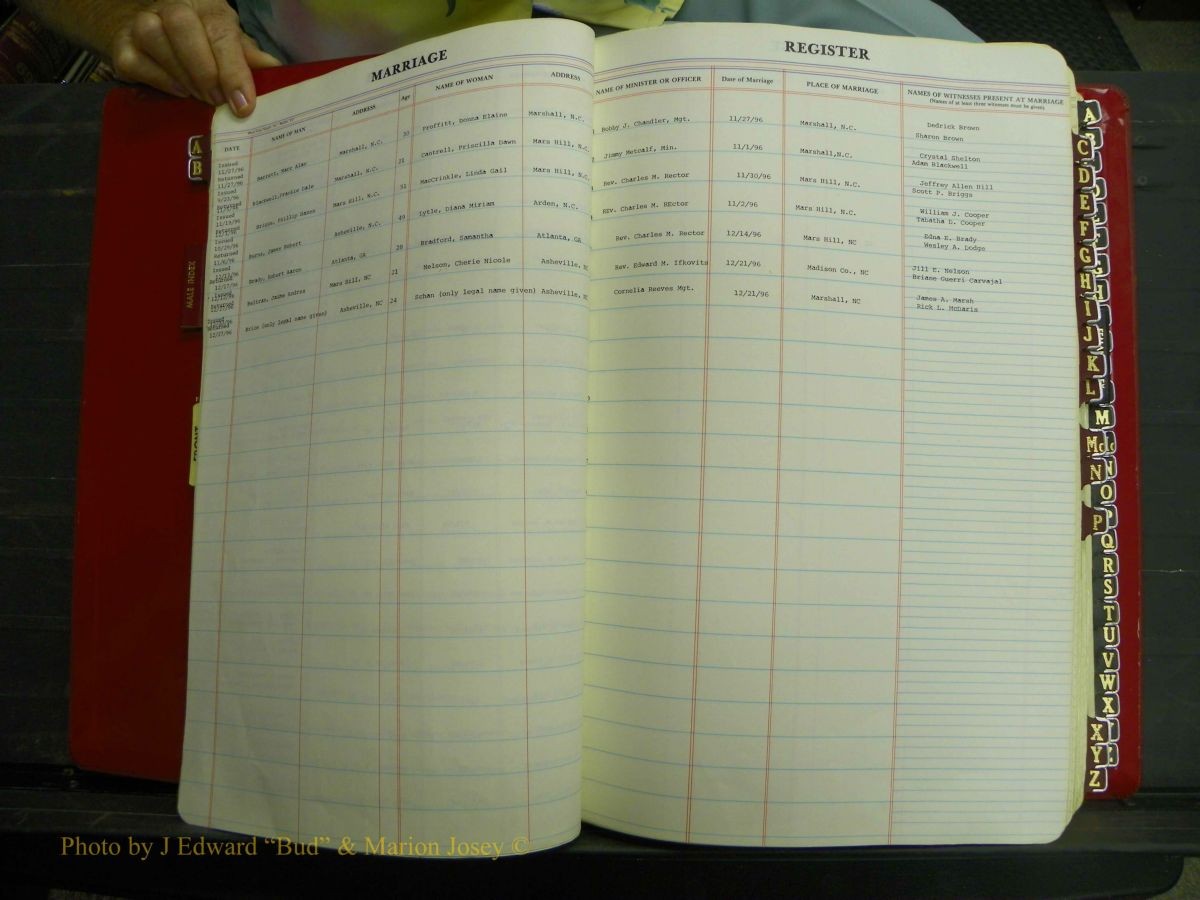 MARRIAGE
DATE
NAME OF MAN
ADDRESS
Age
NAME OF WOMAN
ADDRESS
Issued
11/27/96
Returned
11/27/96
Barrett, Marc Alan
Marshall, N.C.
30
Proffitt, Donna Elaine
Marshall, N.C.
Issued
Marshall, N.C.
21
Cantrell, Priscilla Dawn
Mars Hill, N.C.
Issued
Mars Hill, N.C.
31
MacCrinkle, Linda Gail
Mars Hill, N.C.
Issued
Returned
Burns, James Robert
Asheville, N.C.
49
Lytle, Diana Miriam
Arden, N.C.
Issued
Returned
Brady, Robert Aaron
Atlanta, GA
Bradford, Samantha
Atlanta, GA
Issued
Returned
Beltran, Jaime Andres
Mars Hill, NC
21
Nelson, Cherie Nicole
Asheville,
Issued
Returned
12/27/96
Brice (only legal name given)
Asheville, NC
24
Schan (only legal name given)
Asheville, NC
REGISTER
NAME OF MINISTER OR OFFICER
Date of Marriage
PLACE OF MARRIAGE
NAMES OF WITNESSES PRESENT AT MARRIAGE
(Names of at least three witnesses must be given)
Bobby J. Chandler, Mgt.
11/27/96
Marshall, N.C.
Dedrick Brown
Sharon Brown
Jimmy Metcalf, Min.
11/1/96
Marshall,N.C.
Crystal Shelton
Adam Blackwell
Rev. Charles M. Rector
11/30/96
Mars Hill, N.C.
Jeffrey Allen Hill
Scott P. Briggs
REv. Charles M. REctor
11/2/96
Mars Hill, N.C.
William J. Cooper
Tabatha L. Cooper
Rev. Charles M. Rector
12/14/96
Mars Hill, NC
Edna E. Brady
Wesley A. Dodge
Rev. Edward M. Ifkovits
12/21/96
Madison Co., NC
Jill E. Nelson
Briane Guerri Carvajal
Cornelia Reeves Mgt.
12/21/96
Marshall, NC
James A. Marsh
Rick L. McHaris
A
B
MALE INDEX
FRONT
A
C
D
E
F
G
H
I
J
K
L
M
Mc
N
O
P
Q
R
S
T
U
V
W
X
XYZ
Photo by J Edward “Bud” & Marion Josey ©